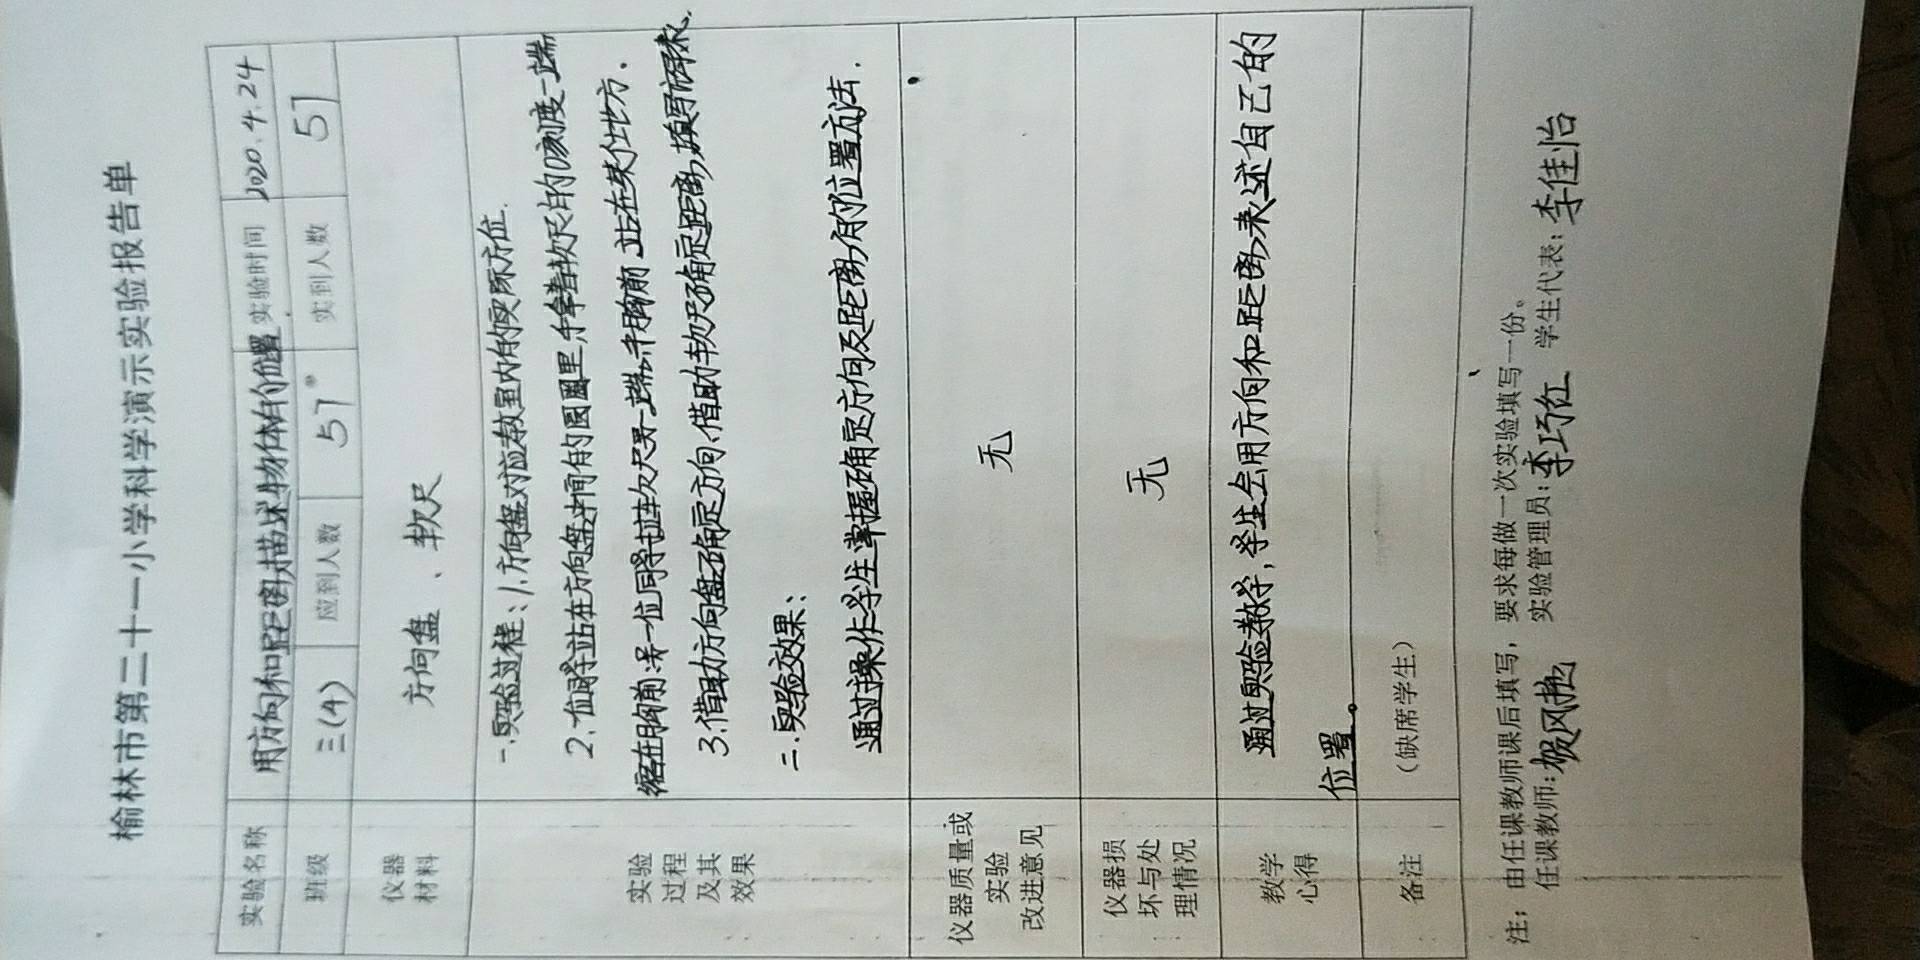 榆林市第二十一小学科学演示实验报告单
实验名称 用方向和距离描述物体的位置 实验时间 2020.4.24
班级 三(4) 应到人数 57 实到人数 57
仪器材料 方向盘、软尺
实验过程及其效果
一.实验过程:1.方向盘对应教室内的实际方位.
2.一位同学站在方向盘中间的圆圈里,手拿着软尺的0刻度一端
缩在胸前.另一位同学拉软尺另一端,手胸前站在某个地方.
3.借助方向盘确定方向,借助软尺确定距离,填写记录表.
二.实验效果:
通过操作学生掌握确定方向及距离的位置方法.
仪器质量或实验改进意见 无
仪器损坏与处理情况 无
教学心得 通过实验教学,学生会用方向和距离表述自己的
位置。
备注 (缺席学生)
注:由任课教师课后填写,要求每做一次实验填写一份。
任课教师:贺风艳 实验管理员:李巧红 学生代表:李佳怡